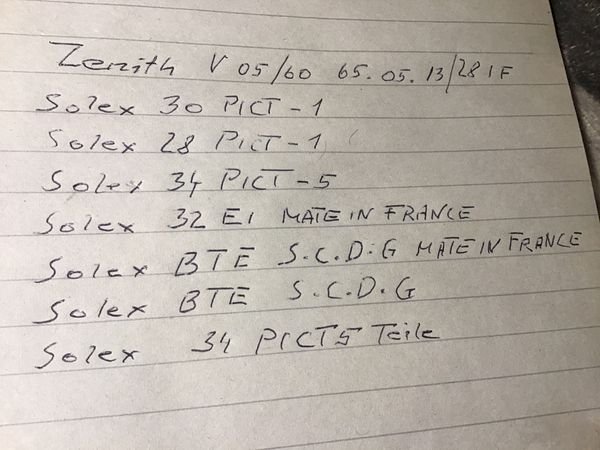 Zenith V 05/60 65.05.13/28 IF
Solex 30 PICT-1
Solex 28 PICT-1
Solex 34 PICT-5
Solex 32 EI MATE IN FRANCE
Solex BTE S.C.D.G MATE IN FRANCE
Solex BTE S.C.D.G
Solex 34 PICT5 Teile